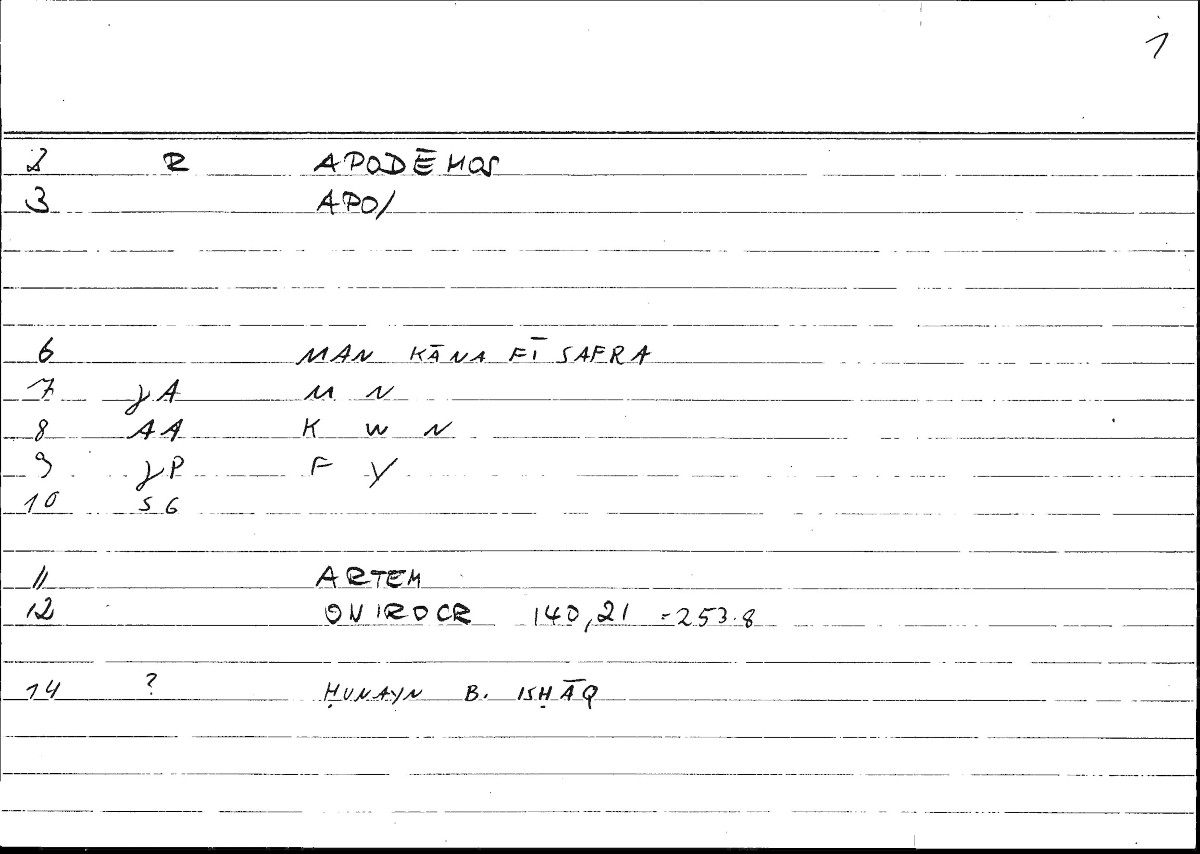 1
2 R APODĒMOS
3 APO/
6 MAN KĀNA FĪ SAFRA
7 γA M N
8 AA K W N
9 γP F Y
10 SG
11 ARTEM
12 ONIROCR 140,21 = 253.8
14 ? ḤUNAYN B. ISḤĀQ